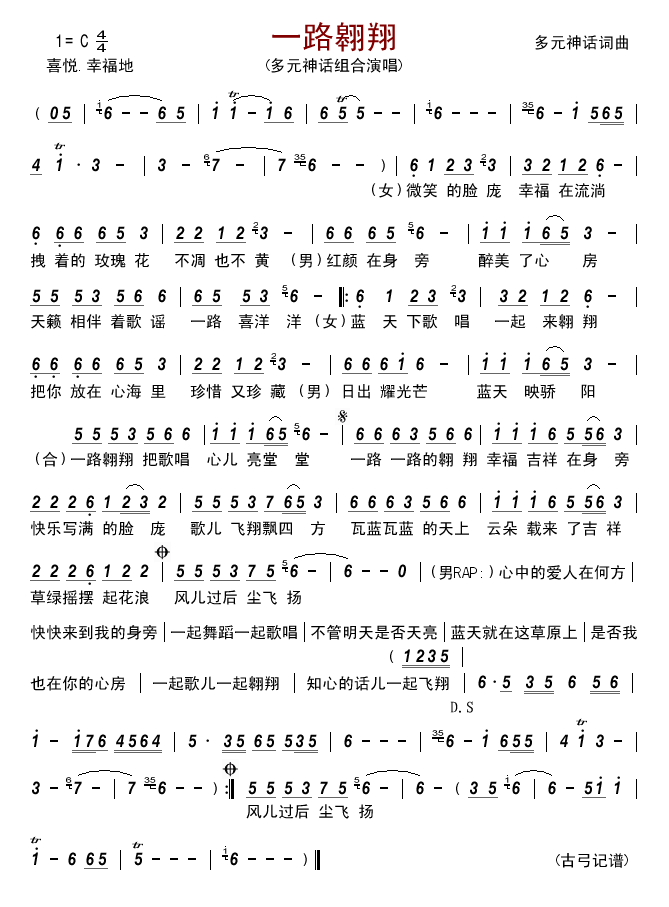 一路翱翔
1= C 4/4
多元神话词曲
喜悦.幸福地
(多元神话组合演唱)
( 05 | i6 - - 6 5 | i i - i 6 | 6 5 - - | i6 - - - | 356 - i 565 |
4 i · 3 - | 3 - 67 - | 7 356 - - ) | 6 1 2 3 23 | 3 2 1 2 6 - |
(女) 微笑 的脸 庞 幸福 在流淌
6 6 6 6 5 3 | 2 2 1 2 23 - | 6 6 6 5 56 - | i i i 65 3 - |
拽 着的 玫瑰 花 不凋 也不 黄 (男) 红颜 在身 旁 醉美 了心 房
5 5 5 3 5 6 6 | 6 5 5 3 56 - ‖: 6 1 2 3 23 | 3 2 1 2 6 - |
天籁 相伴 着歌 谣 一路 喜洋 洋 (女) 蓝 天 下歌 唱 一起 来翱 翔
6 6 6 6 6 5 3 | 2 2 1 2 23 - | 6 6 6 i 6 - | i i i 65 3 - |
把你 放在 心海 里 珍惜 又珍 藏 (男) 日出 耀光芒 蓝天 映骄 阳
5 5 5 3 5 6 6 | i i i 65 56 - | 6 6 6 3 5 6 6 | i i i 6 5 56 3 |
(合) 一路翱翔 把歌唱 心儿 亮堂 堂 一路 一路的翱 翔 幸福 吉祥 在身 旁
2 2 2 6 1 23 2 | 5 5 5 3 7 65 3 | 6 6 6 3 5 6 6 | i i i 6 5 56 3 |
快乐写满 的脸 庞 歌儿 飞翔飘四 方 瓦蓝瓦蓝 的天上 云朵 载来 了吉 祥
2 2 2 6 1 2 2 | 5 5 5 3 7 5 56 - | 6 - - 0 | (男RAP:) 心中的爱人在何方 |
草绿摇摆 起花浪 风儿过后 尘飞 扬
快快来到我的身旁 | 一起舞蹈一起歌唱 | 不管明天是否天亮 | 蓝天就在这草原上 | 是否我
( 1235 |
也在你的心房 | 一起歌儿一起翱翔 | 知心的话儿一起飞翔 | 6 · 5 3 5 6 5 6 |
D.S
i - i76 4564 | 5 · 35 65 535 | 6 - - - | 356 - i 655 | 4 i 3 - |
3 - 67 - | 7 356 - - ) :‖ 5 5 5 3 7 5 56 - | 6 - ( 3 5 i6 | 6 - 5i i |
风儿过后 尘飞 扬
i - 6 65 | 5 - - - | i6 - - - ) ‖
(古弓记谱)